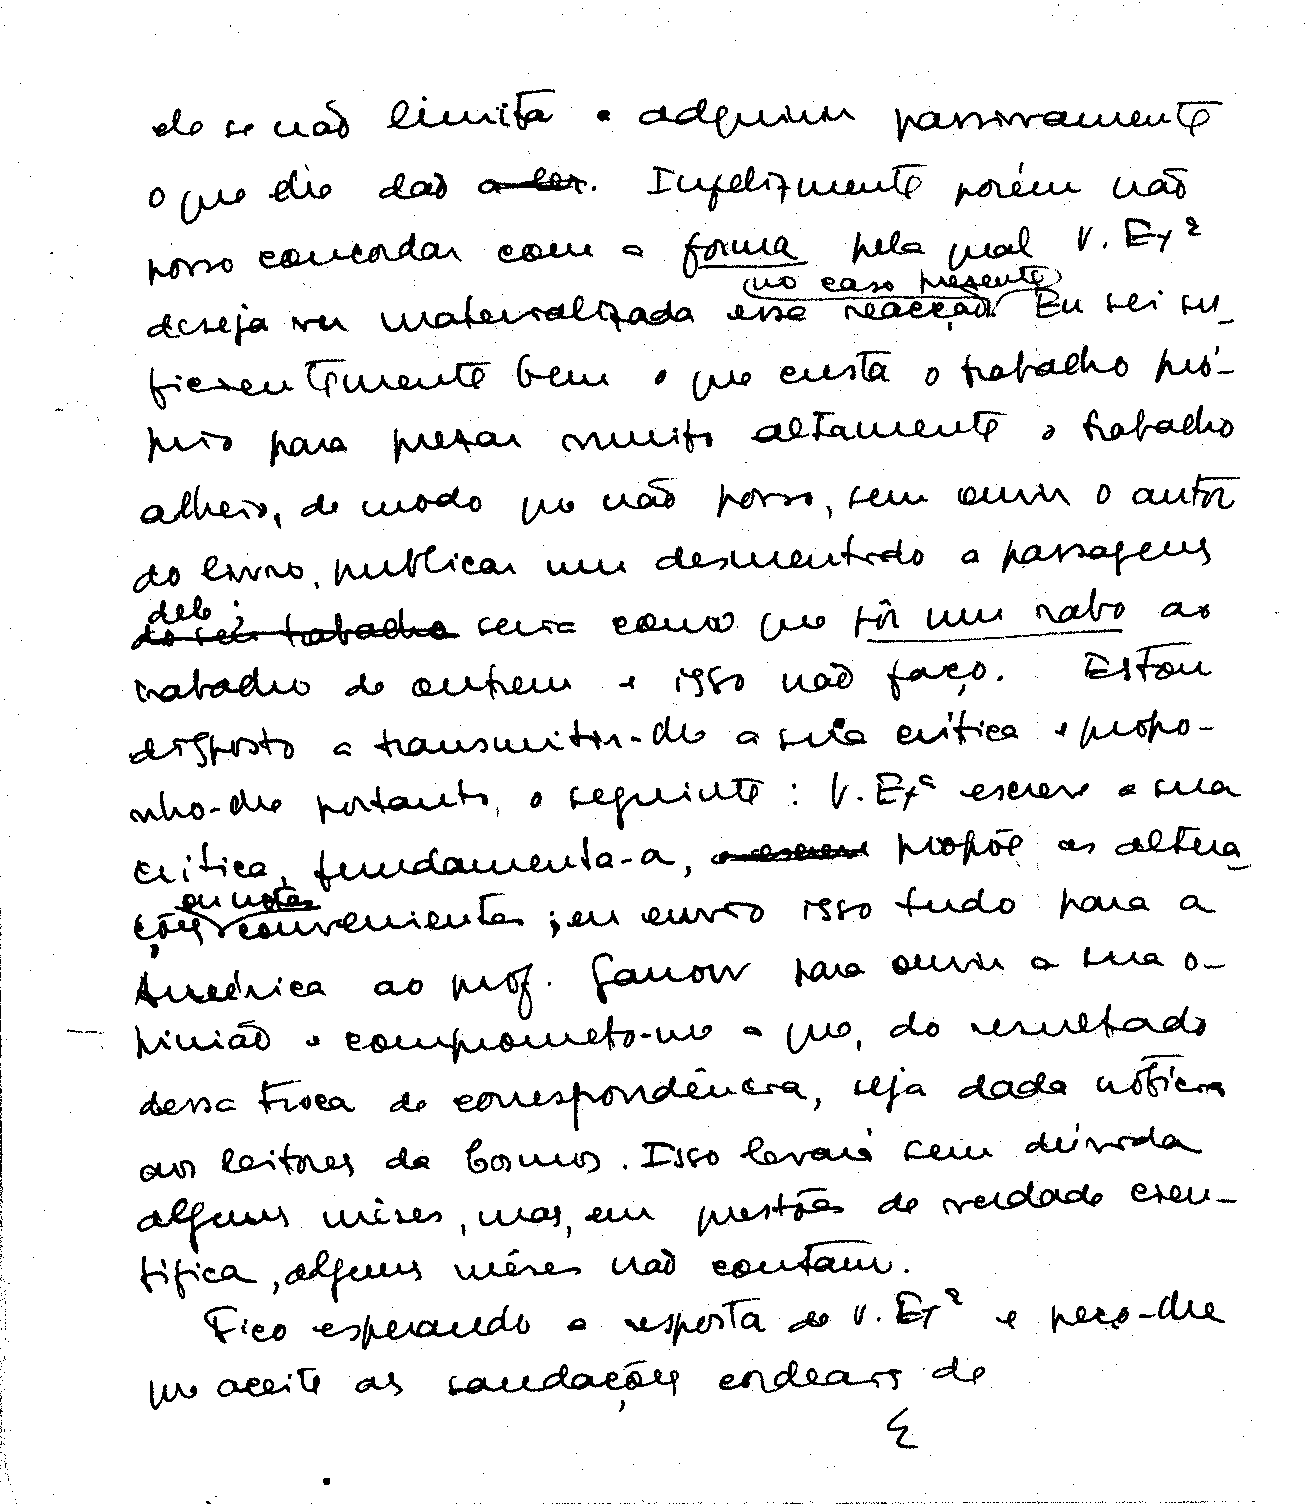 ele se não limita a adquirir passivamente
o que lhe dão a ler. Infelizmente porém não
posso concordar com a forma pela qual V. Exª
no caso presente
deseja ver materializada essa reacção. Eu sei su-
ficientemente bem o que custa o trabalho pró-
prio para prezar muito altamente o trabalho
alheio, de modo que não posso, sem ouvir o autor
do livro, publicar um desmentido a passagens
dele;
do seu trabalho seria como que pôr um rabo ao
trabalho de outrem e isso não faço. Estou
disposto a transmitir-lhe a sua crítica e propo-
nho-lhe portanto, o seguinte: V. Exª escreve a sua
crítica, fundamenta-a, e escreve propõe as altera-
ou notas
ções convenientes; eu envio isso tudo para a
América ao prof. Gamow para ouvir a sua o-
pinião e comprometo-me a que, do resultado
dessa troca de correspondência, seja dada notícia
aos leitores da Cosmos. Isso levará sem dúvida
alguns mêses, mas, em questões de verdade cien-
tífica, alguns mêses não contam.
Fico esperando a resposta de V. Exª e peço-lhe
que aceite as saudações cordeais de